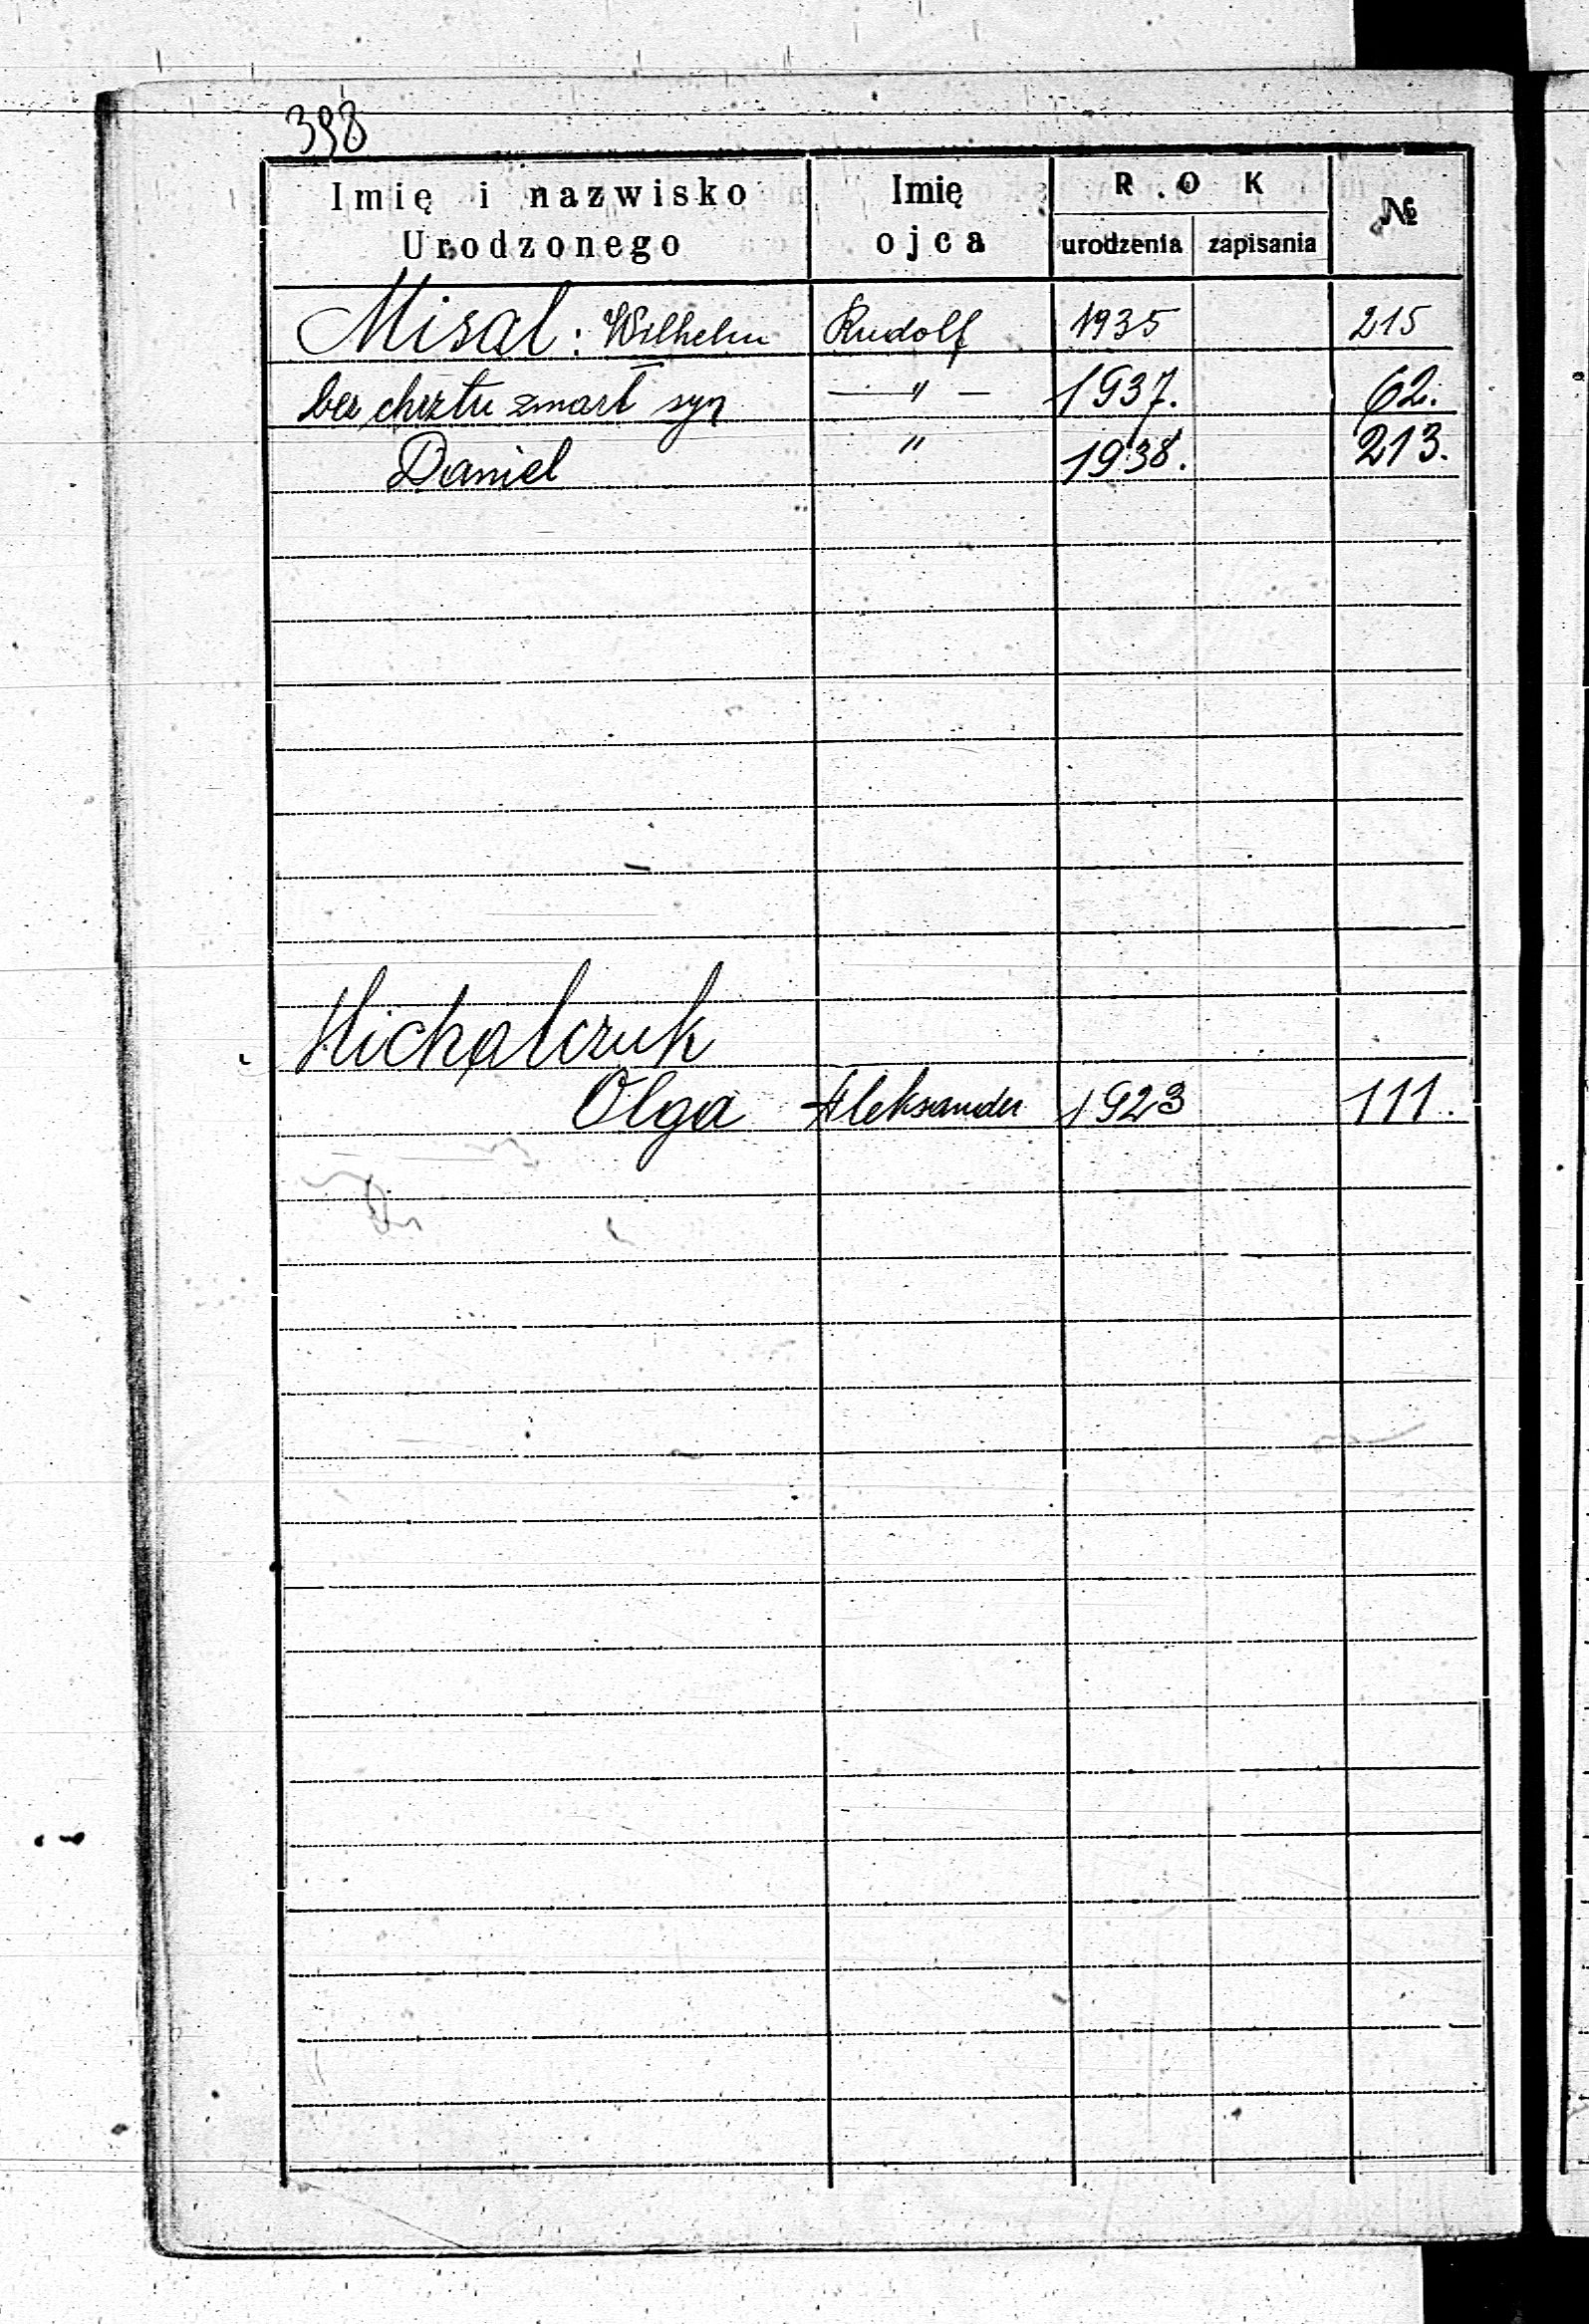 398
Imię i nazwisko Urodzonego | Imię ojca | ROK urodzenia | ROK zapisania | №
Misal: Wilhelm | Rudolf | 1935 | | 215
bez chrztu zmarł syn | — " — | 1937. | | 62.
Daniel | " | 1938. | | 213.
Michalczuk
Olga | Aleksander | 1923 | | 111.